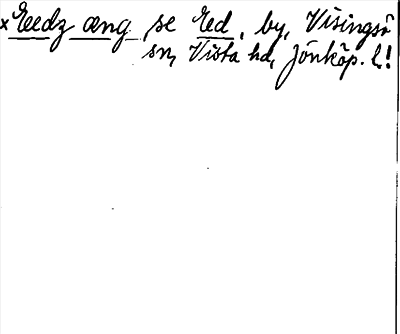 × Eedz æng se Ed, by, Visingsö
sn, Vista hd, Jönköp. l!